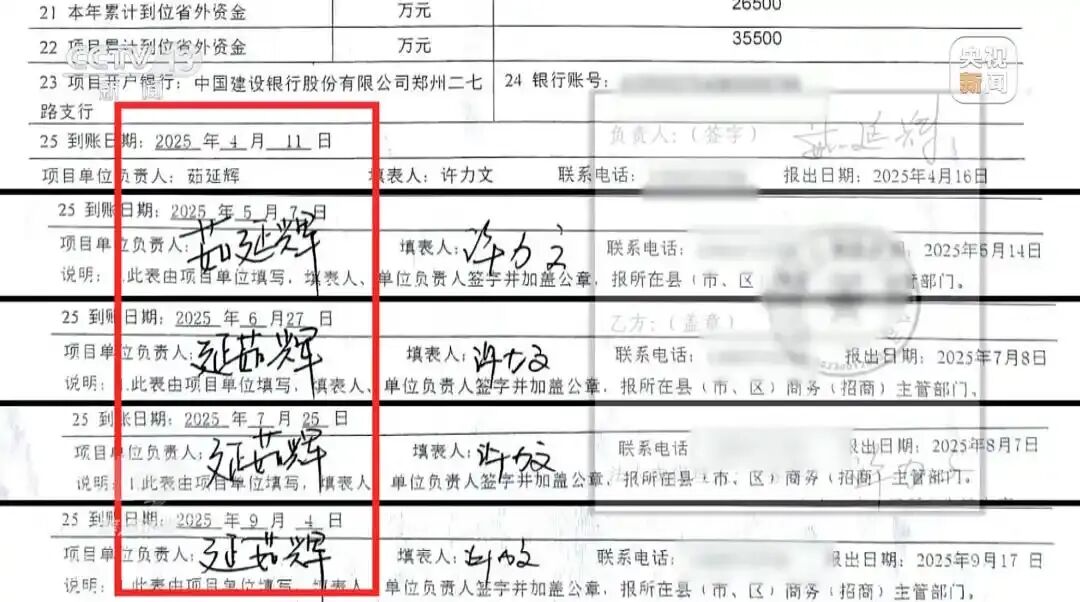 21 本年累计到位省外资金 万元 26500
22 项目累计到位省外资金 万元 35500
CCTV 13
新闻
央视
新闻
23 项目开户银行：中国建设银行股份有限公司郑州二七 24 银行账号：
路支行
负责人：（签字） 茹延辉
25 到账日期：2025 年 4 月 11 日
项目单位负责人：茹延辉 填表人：许力文 联系电话： 报出日期：2025年4月16日
25 到账日期：2025 年 5 月 7 日
项目单位负责人：茹延辉 填表人：许力文 联系电话： 2025年5月14日
说明：1.此表由项目单位填写，填表人、单位负责人签字并加盖公章，报所在县（市、区 主管部门。
25 到账日期：2025 年 6 月 27 日 乙方：（盖章）
项目单位负责人：延茹辉 填表人：许力文 联系电话： 报出日期：2025年7月8日
说明：1.此表由项目单位填写，填表人、单位负责人签字并加盖公章，报所在县（市、区）商务（招商）主管部门。
25 到账日期：2025 年 7 月 25 日
项目单位负责人：延茹辉 填表人：许力文 联系电话 报出日期：2025年8月7日
说明：1.此表由项目单位填写，填表人、单位负责人签字并加盖公章，报所在县（市、区）商务（招商）主管部门。
25 到账日期：2025 年 9 月 4 日
项目单位负责人：延茹辉 填表人：许力文 联系电话： 报出日期：2025年9月17日
说明：1.此表由项目单位填写，填表人、单位负责人签字并加盖公章，报所在县（市、区）商务（招商）主管部门。